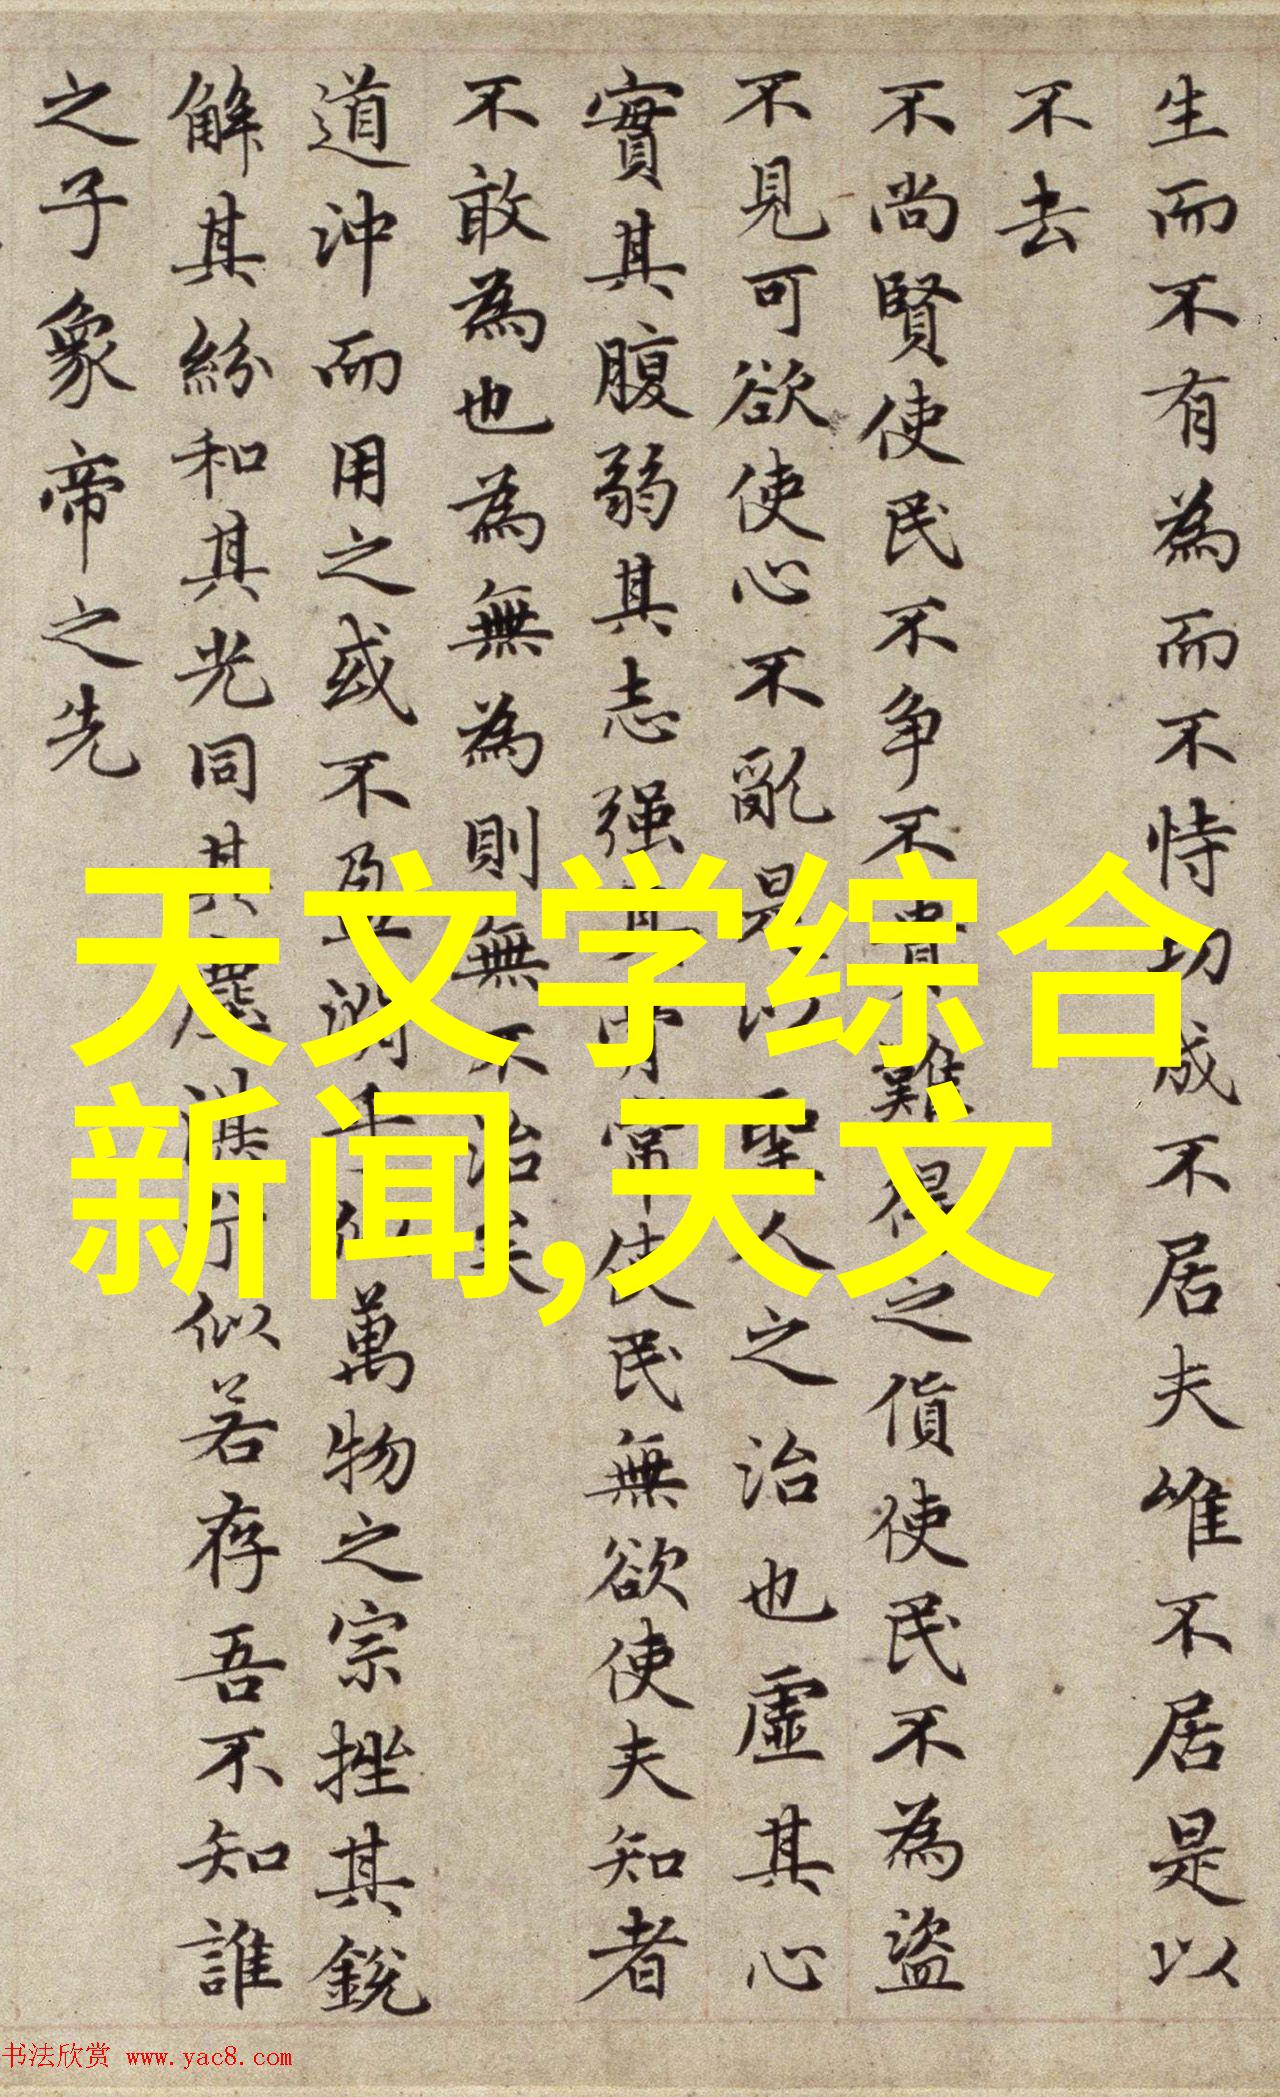 生而不有為而不恃功成不居夫唯不居是以
不去
不尚賢使民不争不貴難得之貨使民不為盜
不見可欲使心不亂是以聖人之治也虛其心
實其腹弱其志强其骨常使民無欲使夫知者
不敢為也為無為則無不治矣
道沖而用之或不盈淵乎似萬物之宗挫其銳
解其紛和其光同其塵湛兮似若存吾不知誰
之子象帝之先
天文学综合
新闻,天文
书法欣赏 www.yac8.com